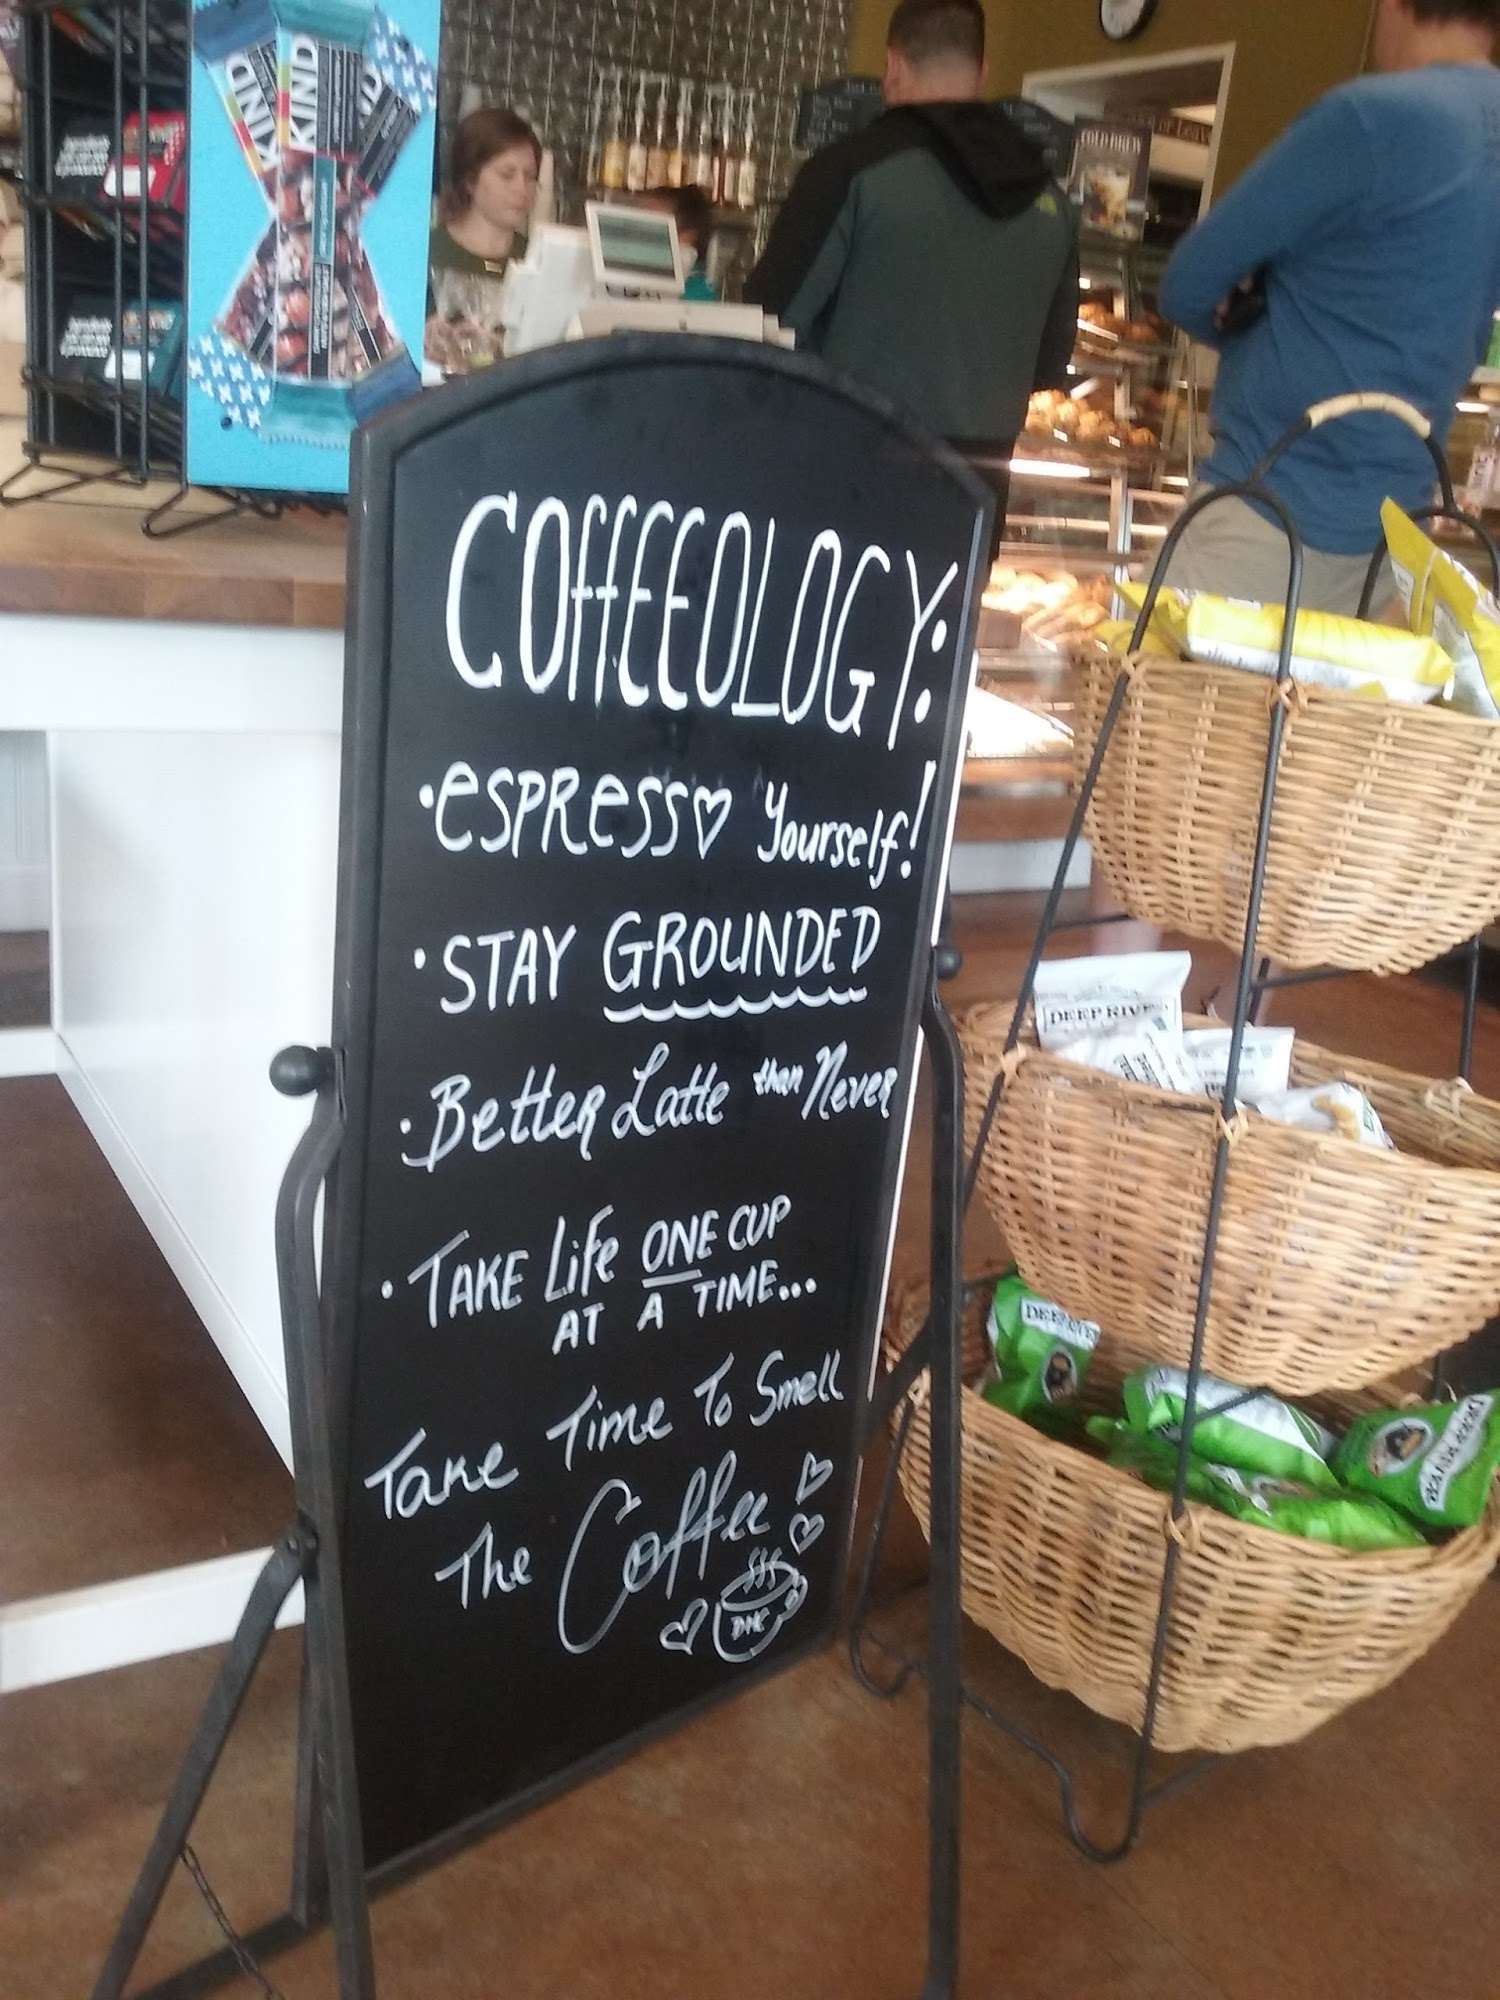 COffEEOLOGY:
• ESPRESS♡ Yourself!
• STAY GROUNDED
• Better Latte than Never
• TAKE Life ONE CUP
AT A TIME...
Take Time To Smell
The Coffee
KIND
KIND
COLD BREW
DEEP RIVER
DEEP RIVER